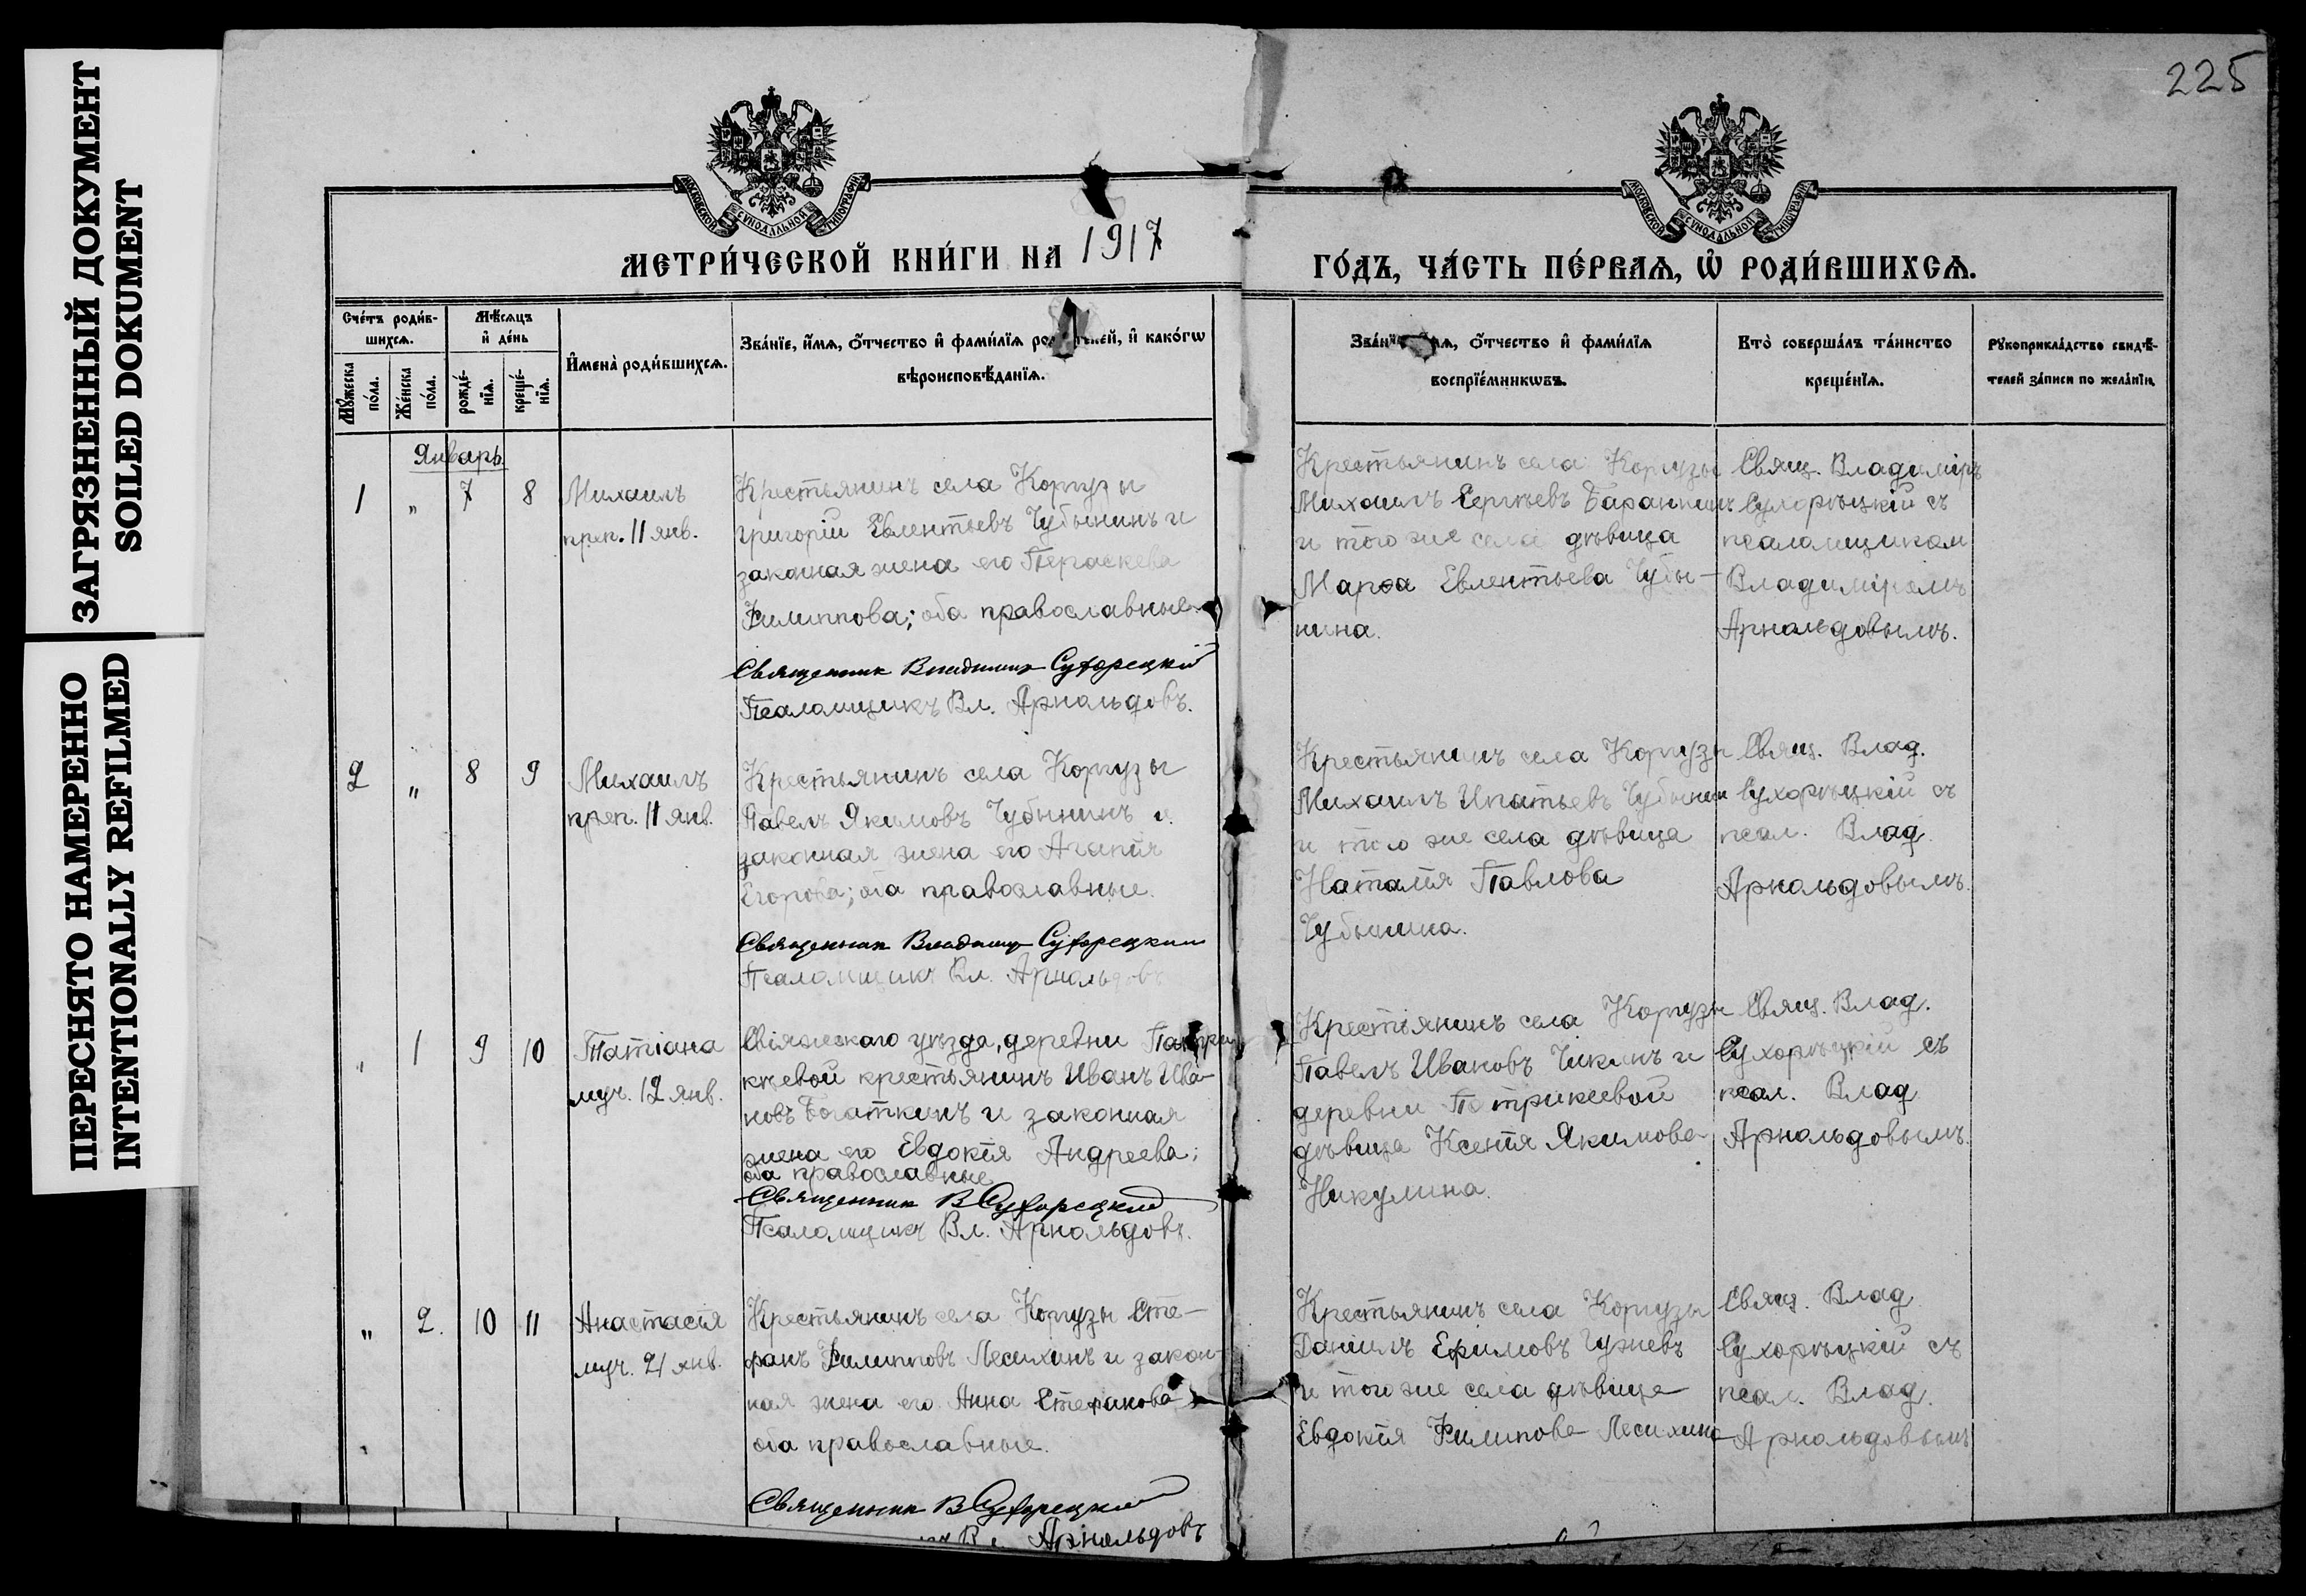 ЗАГРЯЗНЕННЫЙ ДОКУМЕНТ
SOILED DOKUMENT
ПЕРЕСНЯТО НАМЕРЕННО
INTENTIONALLY REFILMED
225
МОСКОВСКОЙ СѴНОДАЛЬНОЙ ТИПОГРАФІИ
МОСКОВСКОЙ СѴНОДАЛЬНОЙ ТИПОГРАФІИ
МЕТРИ́ЧЕСКОЙ КНИ́ГИ НА 1917
ГО́ДЪ, ЧА́СТЬ ПЕ́РВАѦ, Ѽ РОДИ́ВШИХСѦ.
Сче́тъ роди́в-
шихсѧ.
Мꙋ́жеска
по́ла.
Же́нска
по́ла.
Мѣ́сѧцъ
и҆ де́нь
рожде́-
нїѧ.
креще́-
нїѧ.
И҆мена̀ роди́вшихсѧ.
Зва́нїе, и҆́мѧ, ѻ҆́тчество и҆ фами́лїѧ родителей, и҆ како́гѡ
вѣроисповѣ́данїѧ.
Зва́нїе, и҆́мѧ, ѻ҆́тчество и҆ фами́лїѧ
воспрїе́мникѡвъ.
Кто̀ соверша́лъ та́инство
креще́нїѧ.
Рꙋкоприкла́дство свидѣ́-
телей за́писи по жела́нїю.
Январь.
1 " 7 8
Михаилъ
преп. 11 янв.
Крестьянинъ села Коргузы
Григорій Евлентьевъ Чубынинъ и
законная жена его Пераскева
Филиппова; оба православные
Священник Владимир Сухорецкій
Псаломщикъ Вл. Арнольдовъ.
Крестьянинъ села Коргузы
Михаилъ Сергѣевъ Баранкинъ
и того же села дѣвица
Марѳа Евлентьева Чубы-
нина.
Свящ. Владиміръ
Сухорѣцкій съ
псаломщиком
Владиміромъ
Арнольдовымъ.
2 " 8 9
Михаилъ
преп. 11 янв.
Крестьянинъ села Коргузы
Павелъ Якимовъ Чубынинъ и
законная жена его Агапія
Егорова; оба православные.
Священник Владимир Сухорецкий
Псаломщикъ Вл. Арнольдовъ
Крестьянинъ села Коргузы
Михаилъ Ипатьевъ Чубынин
и того же села дѣвица
Наталія Павлова
Чубынина.
Свящ. Влад.
Сухорѣцкій съ
псал. Влад.
Арнольдовымъ.
" 1 9 10
Татіана
муч. 12 янв.
Свіяжскаго уѣзда, деревни Патри
кѣевой крестьянинъ Иванъ Ива-
новъ Богаткинъ и законная
жена его Евдокія Андреева;
оба православные
Священник В Сухорецкий
Псаломщикъ Вл. Арнольдовъ.
Крестіянинъ села Коргузы
Павелъ Ивановъ Чикинъ и
деревни Патрикеевой
дѣвица Ксенія Якимова
Никулина.
Свящ. Влад.
Сухорѣцкій съ
псал. Влад.
Арнольдовымъ.
" 2. 10 11
Анастасія
муч. 21 янв.
Крестьянинъ села Коргузы Сте-
фанъ Филипповъ Лесихинъ и закон-
ная жена его Анна Стефанова
оба православные.
Священник В Сухорецкий
Вл. Арнольдовъ
Крестьянинъ села Коргузы
Даніилъ Ефимовъ Гужевъ
и того же села дѣвица
Евдокія Филипова Лесихина
Свящ. Влад
Сухорѣцкій съ
псал. Влад.
Арнольдовымъ